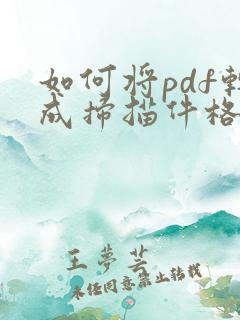 如何将pdf轉
成掃描件格
王夢芸
未经同意禁止转载